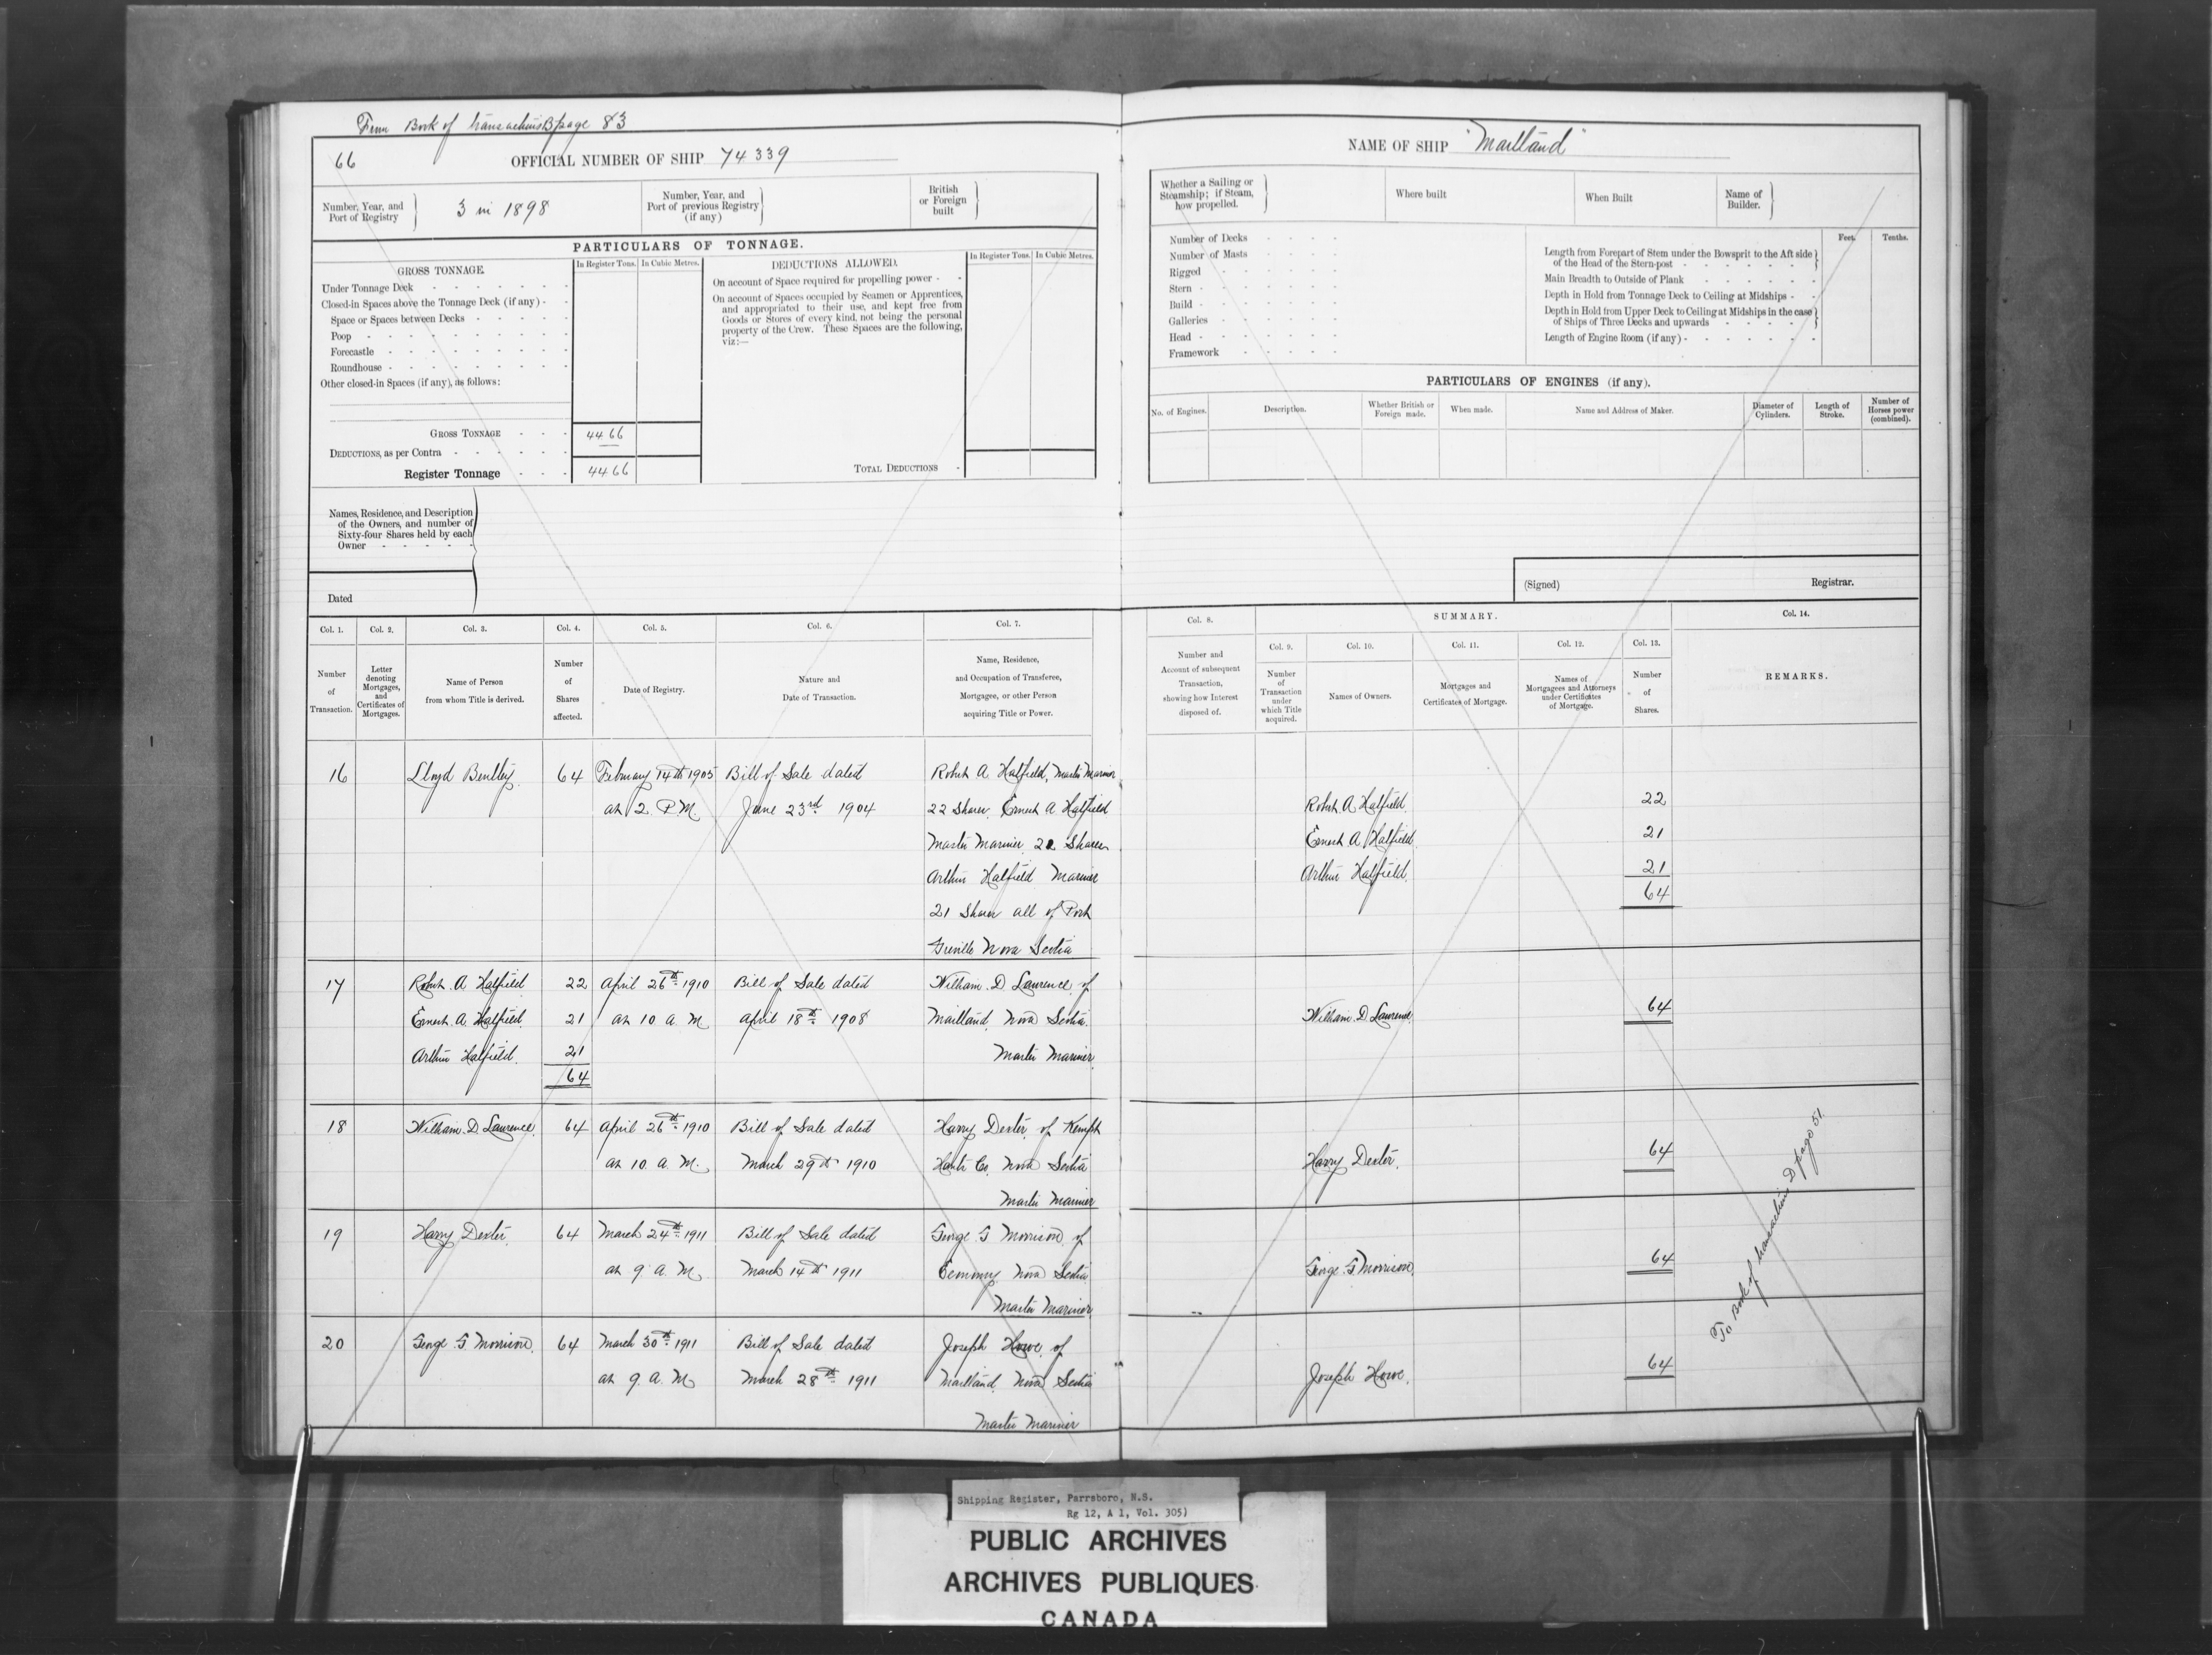 From Book of transactions B page 83
66
OFFICIAL NUMBER OF SHIP 74339
Number, Year, and
Port of Registry
3 in 1898
Number, Year, and
Port of previous Registry
(if any)
British
or Foreign
built
PARTICULARS OF TONNAGE.
GROSS TONNAGE.
In Register Tons. In Cubic Metres.
Under Tonnage Deck
Closed-in Spaces above the Tonnage Deck (if any)
Space or Spaces between Decks
Poop
Forecastle
Roundhouse
Other closed-in Spaces (if any), as follows:
GROSS TONNAGE 4466
DEDUCTIONS, as per Contra
Register Tonnage 4466
DEDUCTIONS ALLOWED.
In Register Tons. In Cubic Metres.
On account of Space required for propelling power
On account of Spaces occupied by Seamen or Apprentices,
and appropriated to their use, and kept free from
Goods or Stores of every kind, not being the personal
property of the Crew. These Spaces are the following,
viz:—
TOTAL DEDUCTIONS
Names, Residence, and Description
of the Owners, and number of
Sixty-four Shares held by each
Owner
Dated
NAME OF SHIP "Maitland"
Whether a Sailing or
Steamship; if Steam,
how propelled.
Where built
When Built
Name of
Builder.
Number of Decks
Number of Masts
Rigged
Stern
Build
Galleries
Head
Framework
Feet. Tenths.
Length from Forepart of Stem under the Bowsprit to the Aft side
of the Head of the Stern-post
Main Breadth to Outside of Plank
Depth in Hold from Tonnage Deck to Ceiling at Midships
Depth in Hold from Upper Deck to Ceiling at Midships in the case
of Ships of Three Decks and upwards
Length of Engine Room (if any)
PARTICULARS OF ENGINES (if any).
No. of Engines.
Description.
Whether British or
Foreign made.
When made.
Name and Address of Maker.
Diameter of
Cylinders.
Length of
Stroke.
Number of
Horses power
(combined).
(Signed) Registrar.
Col. 1.
Number
of
Transaction.
Col. 2.
Letter
denoting
Mortgages,
and
Certificates of
Mortgages.
Col. 3.
Name of Person
from whom Title is derived.
Col. 4.
Number
of
Shares
affected.
Col. 5.
Date of Registry.
Col. 6.
Nature and
Date of Transaction.
Col. 7.
Name, Residence,
and Occupation of Transferee,
Mortgagee, or other Person
acquiring Title or Power.
Col. 8.
Number and
Account of subsequent
Transaction,
showing how Interest
disposed of.
SUMMARY.
Col. 9.
Number
of
Transaction
under
which Title
acquired.
Col. 10.
Names of Owners.
Col. 11.
Mortgages and
Certificates of Mortgage.
Col. 12.
Names of
Mortgagees and Attorneys
under Certificates
of Mortgage.
Col. 13.
Number
of
Shares.
Col. 14.
REMARKS.
16 Lloyd Bentley 64 February 14th 1905 Bill of Sale dated Robert A Hatfield, Master Mariner
at 2 P.M. June 23rd 1904 22 Shares, Ernest A Hatfield Robert A Hatfield 22
Master Mariner, 21 Shares Ernest A Hatfield 21
Arthur Hatfield Mariner Arthur Hatfield. 21
21 Shares all of Port 64
Greville Nova Scotia
17 Robert A Hatfield 22 April 26th 1910 Bill of Sale dated William D Lawrence of
Ernest A Hatfield 21 at 10 a.m. April 18th 1908 Maitland, Nova Scotia William D Lawrence 64
Arthur Hatfield. 21 Master Mariner
64
18 William D Lawrence 64 April 26th 1910 Bill of Sale dated Harry Dexter of Kempt
at 10 a.m. March 29th 1910 Hants Co. Nova Scotia Harry Dexter. 64
Master Mariner
19 Harry Dexter 64 March 24th 1911 Bill of Sale dated George G Morrison of
at 9 a.m. March 14th 1911 Economy Nova Scotia George G Morrison 64
Master Mariner
20 George G Morrison 64 March 30th 1911 Bill of Sale dated Joseph Howe of
at 9. a.m. March 28th 1911 Maitland, Nova Scotia Joseph Howe. 64
Master Mariner
To Book of transactions D page 51.
Shipping Register, Parrsboro, N.S.
Rg 12, A 1, Vol. 305)
PUBLIC ARCHIVES
ARCHIVES PUBLIQUES
CANADA